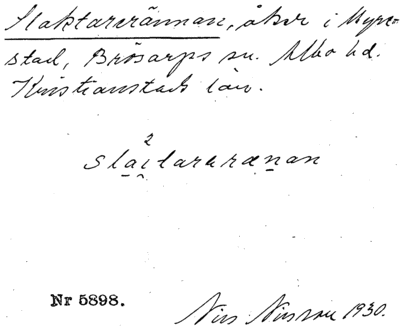 Slaktarerännan, åker i Myre-
stad, Brösarps sn. Albo hd.
Kristianstads län.
2
slai̯tararænan
Nr 5898.
Nils Nilsson 1930.